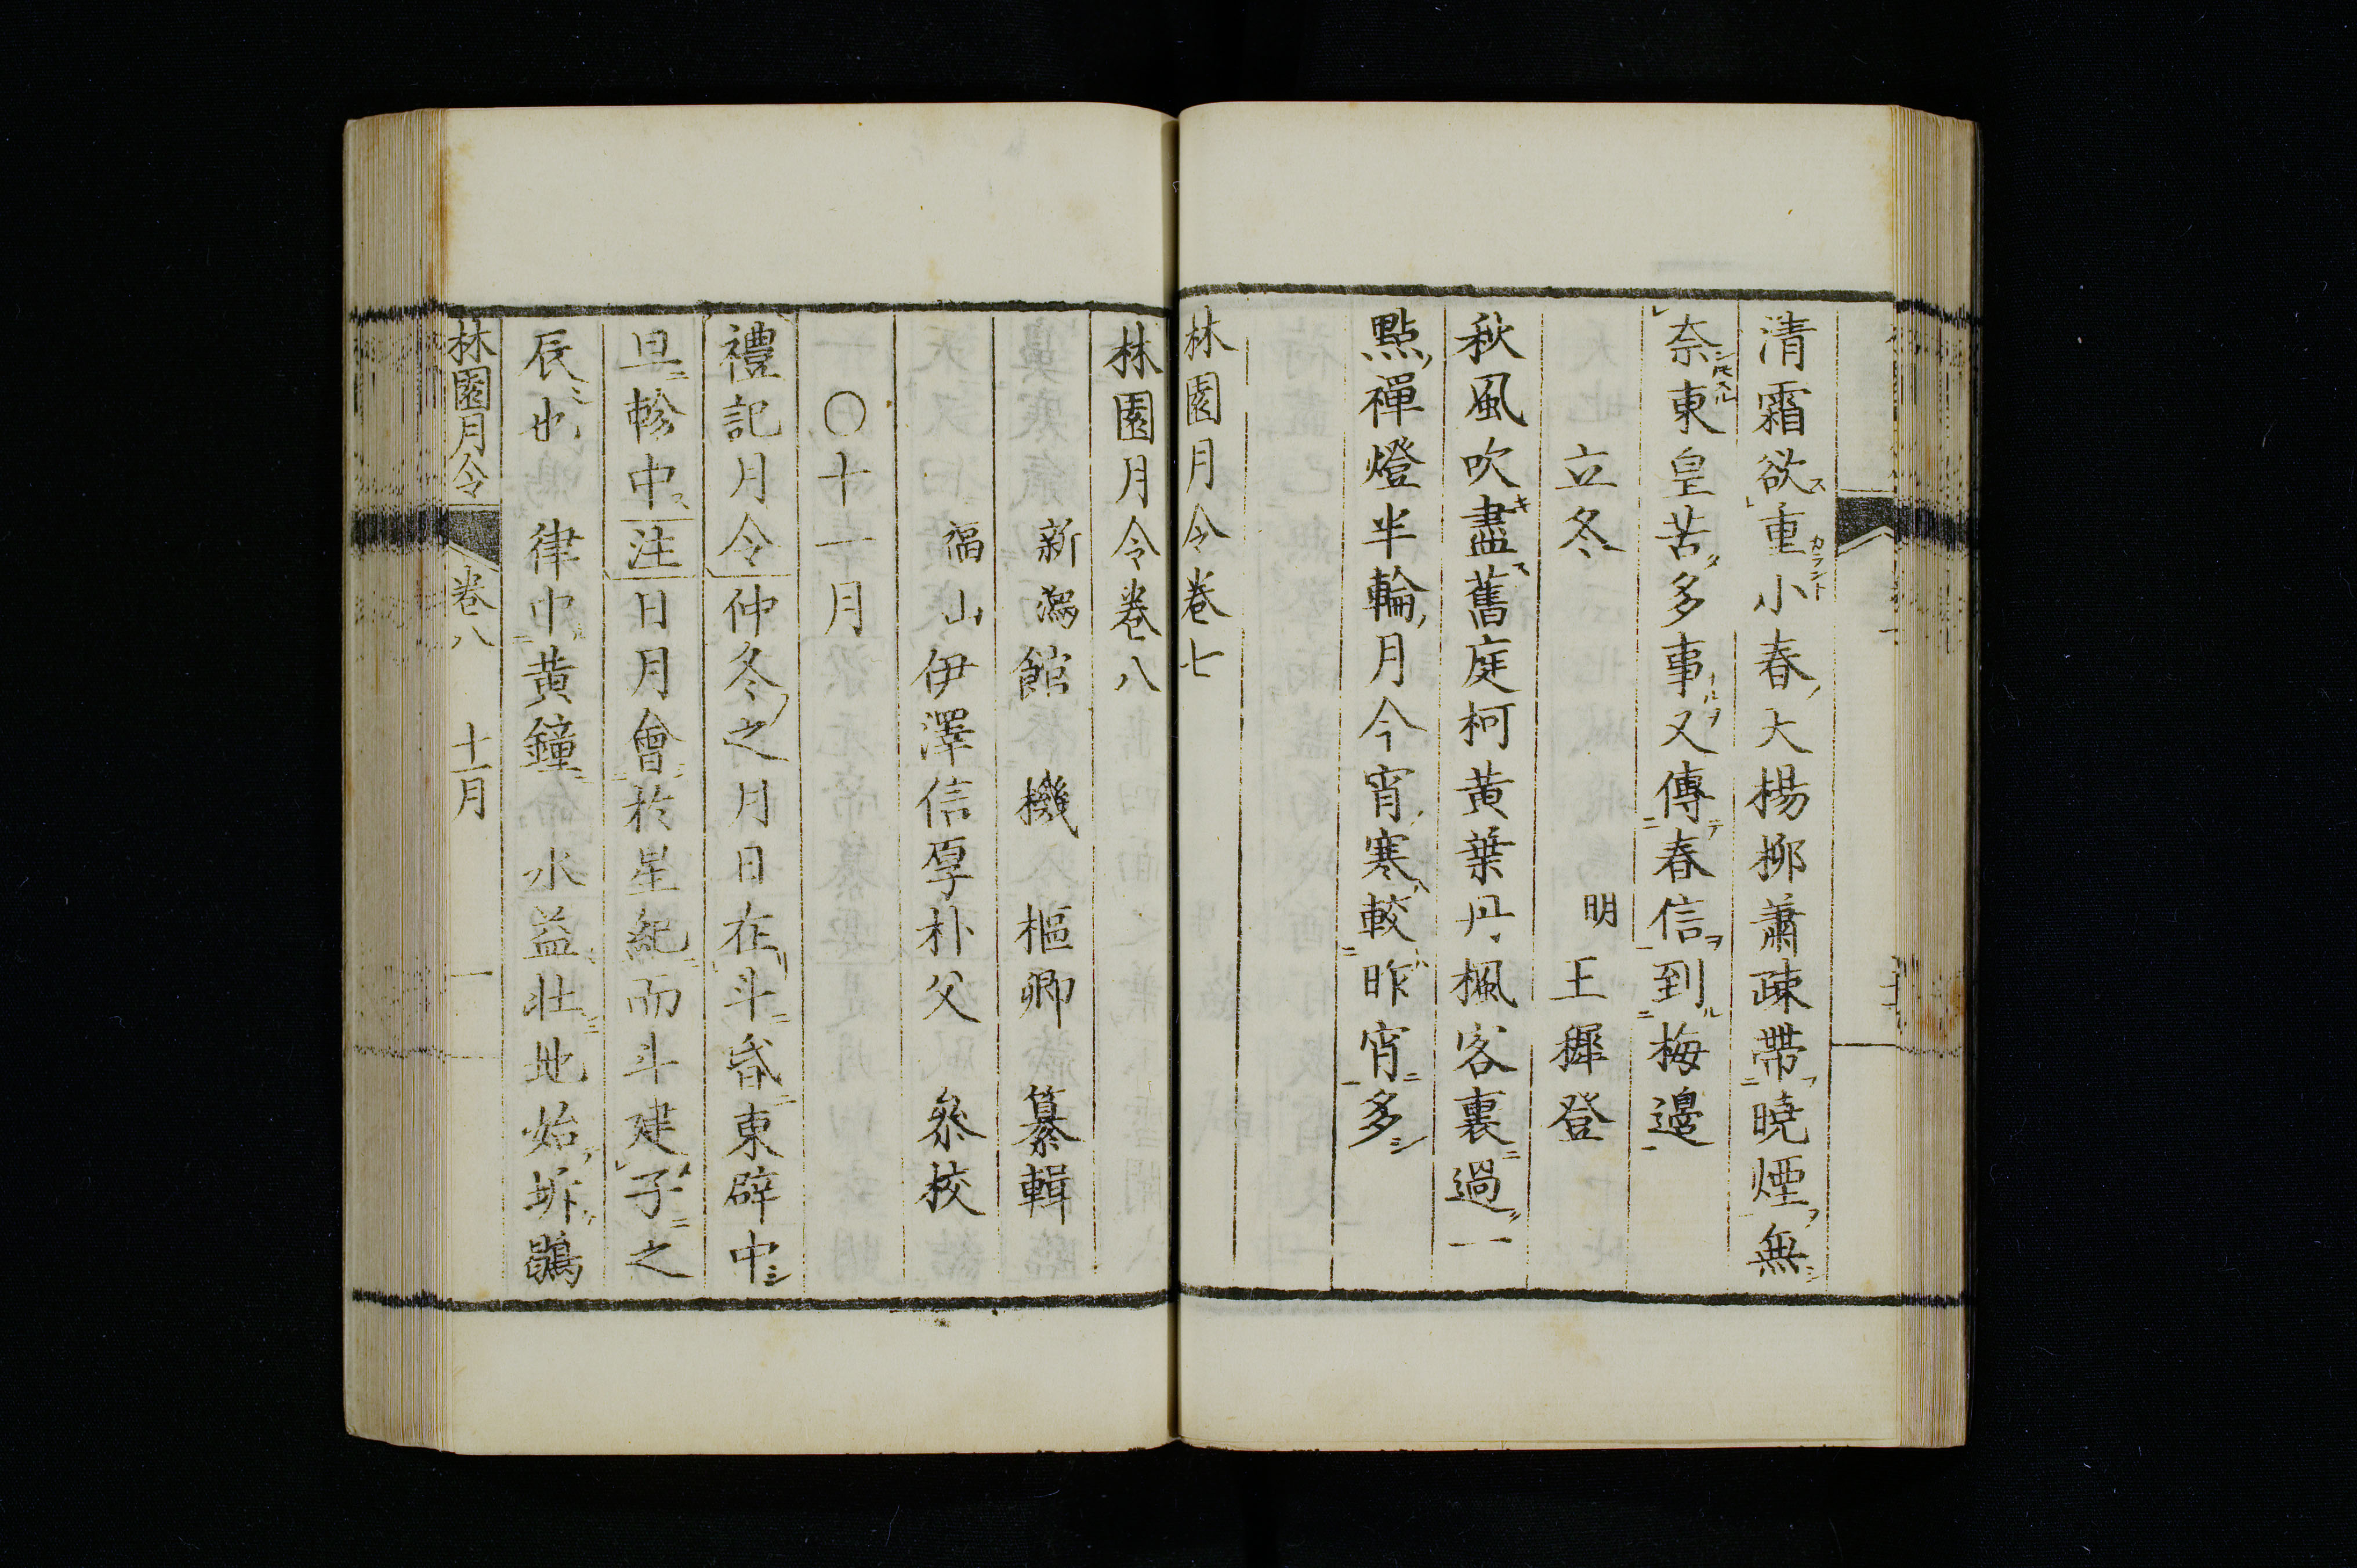 清霜欲重小春大楊柳蕭疎帶曉煙無
奈東皇苦多事又傳春信到梅邊
立冬 明 王穉登
秋風吹盡舊庭柯黄葉丹楓客裏過一
點禪燈半輪月今宵寒較昨宵多
林園月令卷七
林園月令卷八
新潟 館 機 樞卿 纂輯
福山 伊澤信厚朴父 叅挍
〇十一月
禮記月令仲冬之月日在斗昏東辟中
旦軫中注日月會於星紀而斗建子之
辰也 律中黄鐘 氷益壮地始坼鶡
林園月令 卷八 十一月 一